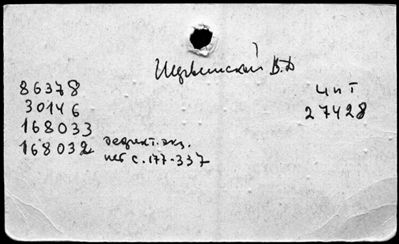 Щервинский В.Д
86378
30146
168033
168032 дефект. экз.
нет с. 177-337
ЧиТ
27428